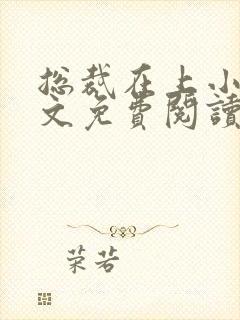 总裁在上小
文免費閱讀
荣若